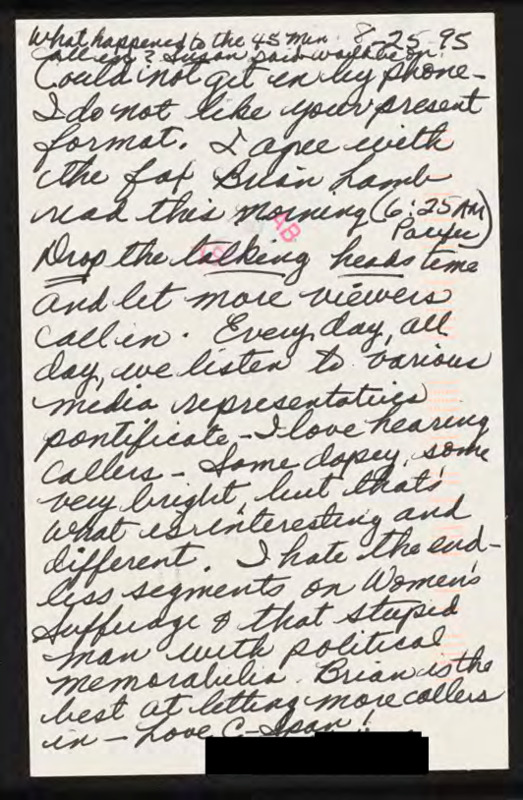 What happened to the 45 min. 8-25-95
call in? Susan said would be on.
Could not get in by phone-
I do not like your present
format. I agree with
the fax Brian Lamb
read this morning (6:25 AM
Pacific)
Drop the talking heads time
and let more viewers
call in. Every day, all
day, we listen to various
media representatives
pontificate - I love hearing
callers - Some dopey, some
very bright, but that's
what is interesting and
different. I hate the end-
less segments on Women's
Suffrage & that stupid
man with political
memorabilia. Brian is the
best at letting more callers
in - Love C-Span!
AB